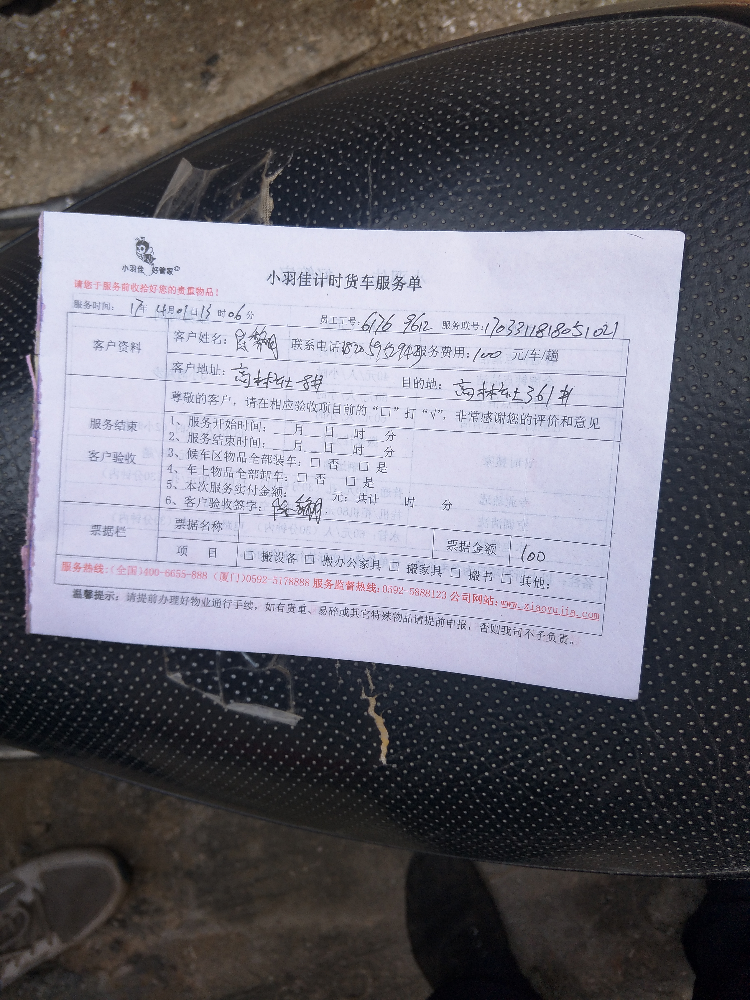 小羽佳 好管家
小羽佳计时货车服务单
请您于服务前收拾好您的贵重物品!
服务时间: 17年 4月01日13时06分 员工工号: 6176 9612 服务取号: 1703311818051021
客户资料
客户姓名: 联系电话 服务费用: 100 元/车/趟
客户地址: 高林社8# 目的地: 高林社361#
服务结束
客户验收
尊敬的客户,请在相应验收项目前的“口”打“√”,非常感谢您的评价和意见
1、服务开始时间: 月 日 时 分
2、服务结束时间: 月 日 时 分
3、候车区物品全部装车: □ 否 □ 是
4、车上物品全部卸车: □ 否 □ 是
5、本次服务实付金额: 元; 共计 时 分
6、客户验收签字:
票据栏
票据名称 票据金额 100
项 目 □ 搬设备 □ 搬办公家具 □ 搬家具 □ 搬书 □ 其他:
服务热线:(全国)400-6655-888 (厦门)0592-5178888 服务监督热线:0592-5888123 公司网站:www.xiaoyujia.com
温馨提示: 请提前办理好物业通行手续,如有贵重、易碎或其它特殊物品请提前申报,否则我司不予负责。